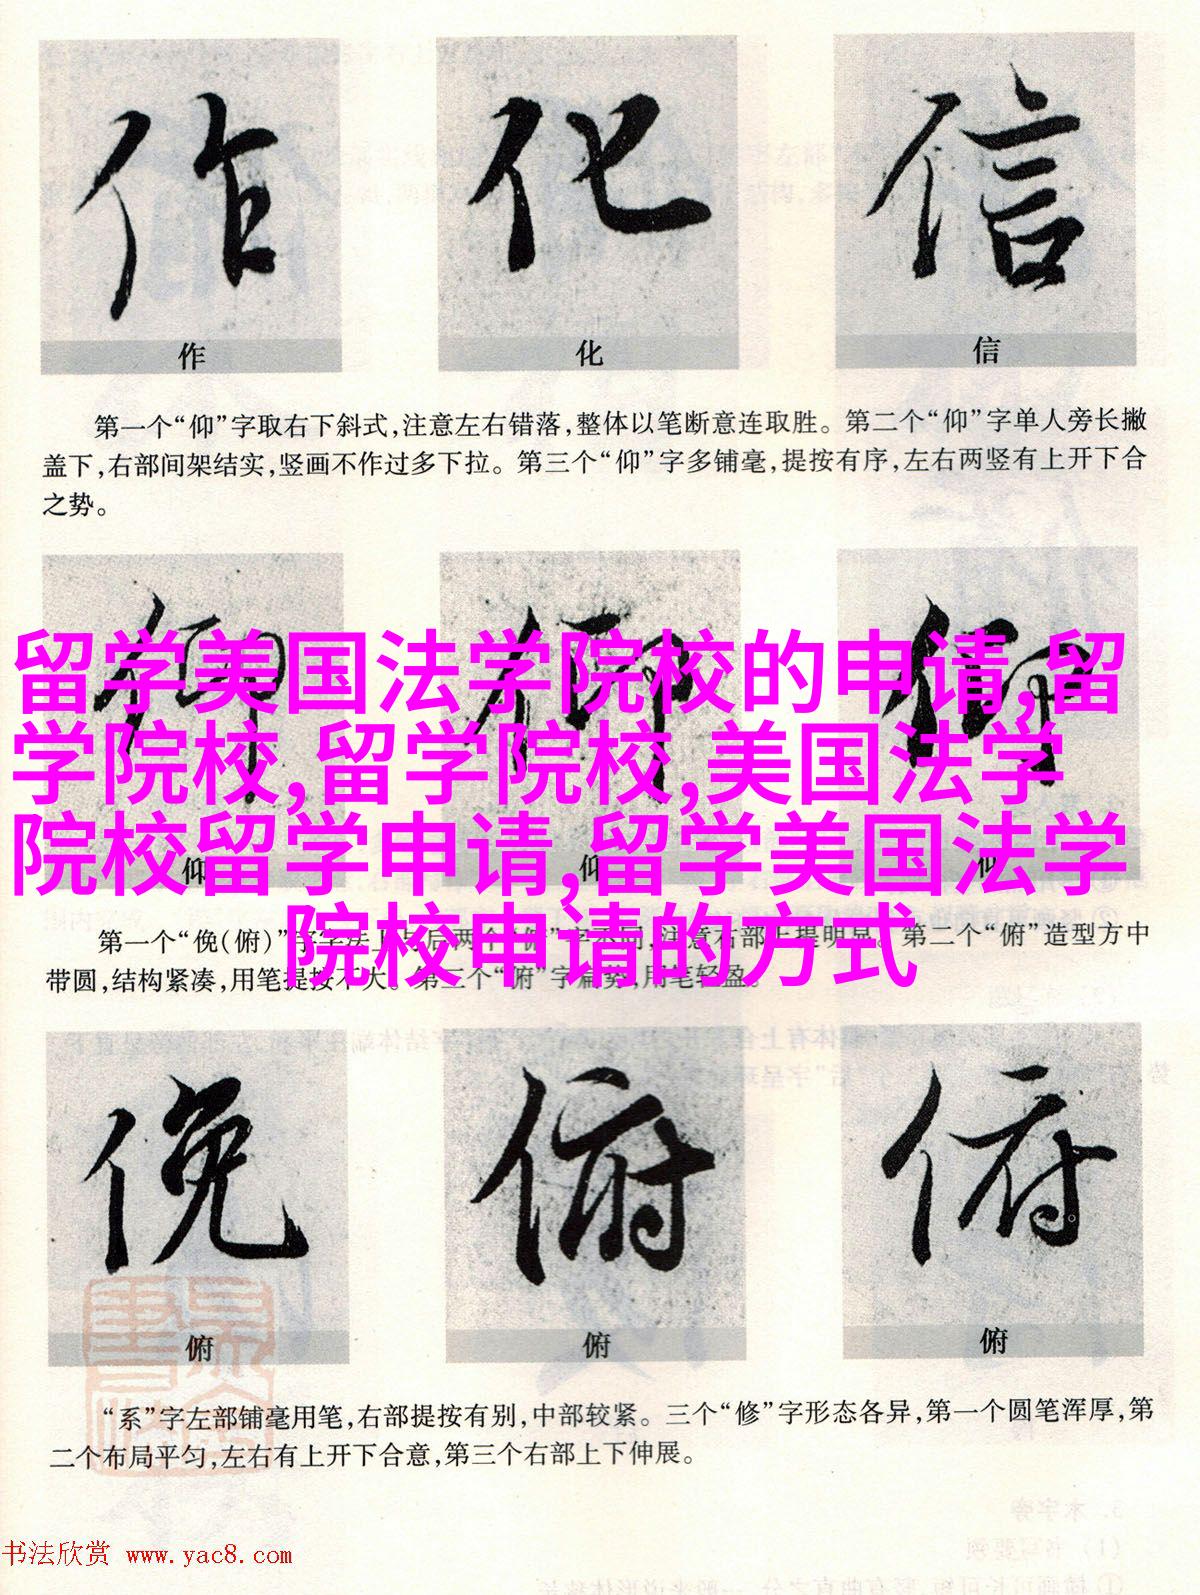 作 化 信
作 化 信
第一个“仰”字取右下斜式,注意左右错落,整体以笔断意连取胜。第二个“仰”字单人旁长撇
盖下,右部间架结实,竖画不作过多下拉。第三个“仰”字多铺毫,提按有序,左右两竖有上开下合
之势。
仰 仰 仰
留学美国法学院校的申请,留
学院校,留学院校,美国法学
院校留学申请,留学美国法学
院校申请的方式
仰 仰 仰
第一个“俛(俯)”字字法上与后两个“俯”字不同,注意右部上提明显。第二个“俯”造型方中
带圆,结构紧凑,用笔提按不大。第三个“俯”字扁势,用笔轻盈。
俛 俯 俯
俯 俯 俯
“系”字左部铺毫用笔,右部提按有别,中部较紧。三个“修”字形态各异,第一个圆笔浑厚,第
二个布局平匀,左右有上开下合意,第三个右部上下伸展。
书法欣赏 www.yac8.com